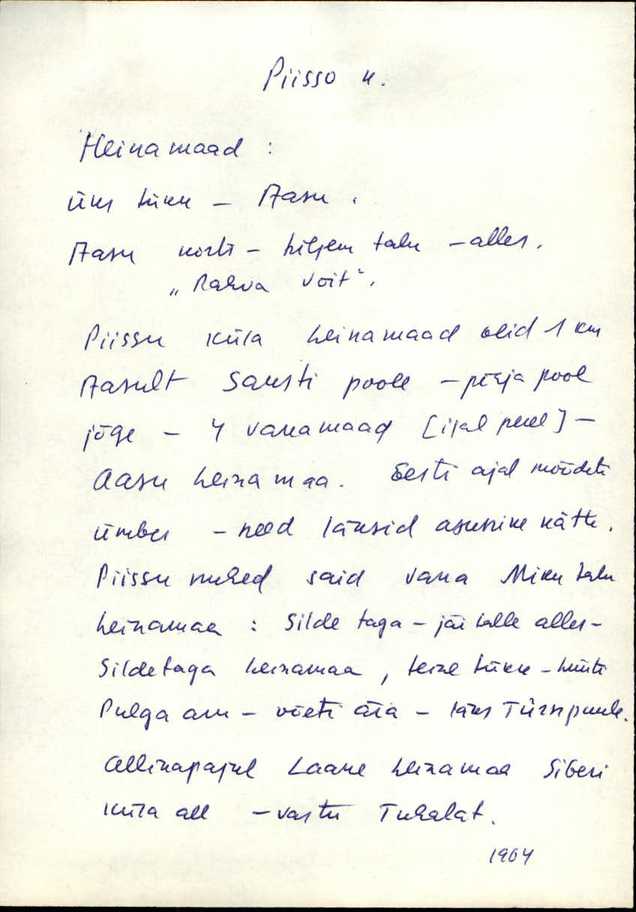 Piisso k.
Heinamaad :
üks tükk – Aasu.
Aasu kõrts – hiljem talu – alles.
„Rahva Võit".
Piissu küla heinamaad olid 1 km
Aasult Saesti poole – põhja pool
jõge – 4 vanamaad [igal perel] –
Aasu heinamaa. Eesti ajal mõõdeti
ümber – need läksid asunike kätte.
Piissu mehed said vana Miku talu
heinamaa : Silde taga – jäi talle alles –
Sildetaga heinamaa, teine tükk – hüüti
Pulga aru – võeti ära – läks Türsipuule.
Allikapajul Laane heinamaa Siberi
küla all – vastu Tuhalat.
1964